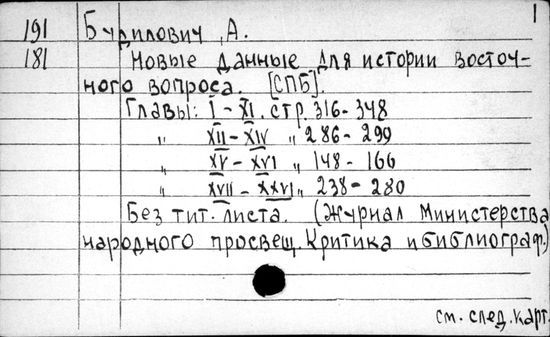 1
191 Будилович, А.
181 Новые данные для истории восточ-
ного вопроса. [СПБ].
Главы: I - XI. стр. 316-348
" XII - XIV " 286-299
" XV - XVI " 148-166
" XVII - XXVI " 238-280
Без тит. листа. (Журнал Министерства
народного просвещ. Критика и библиограф.)
см. след. карт.